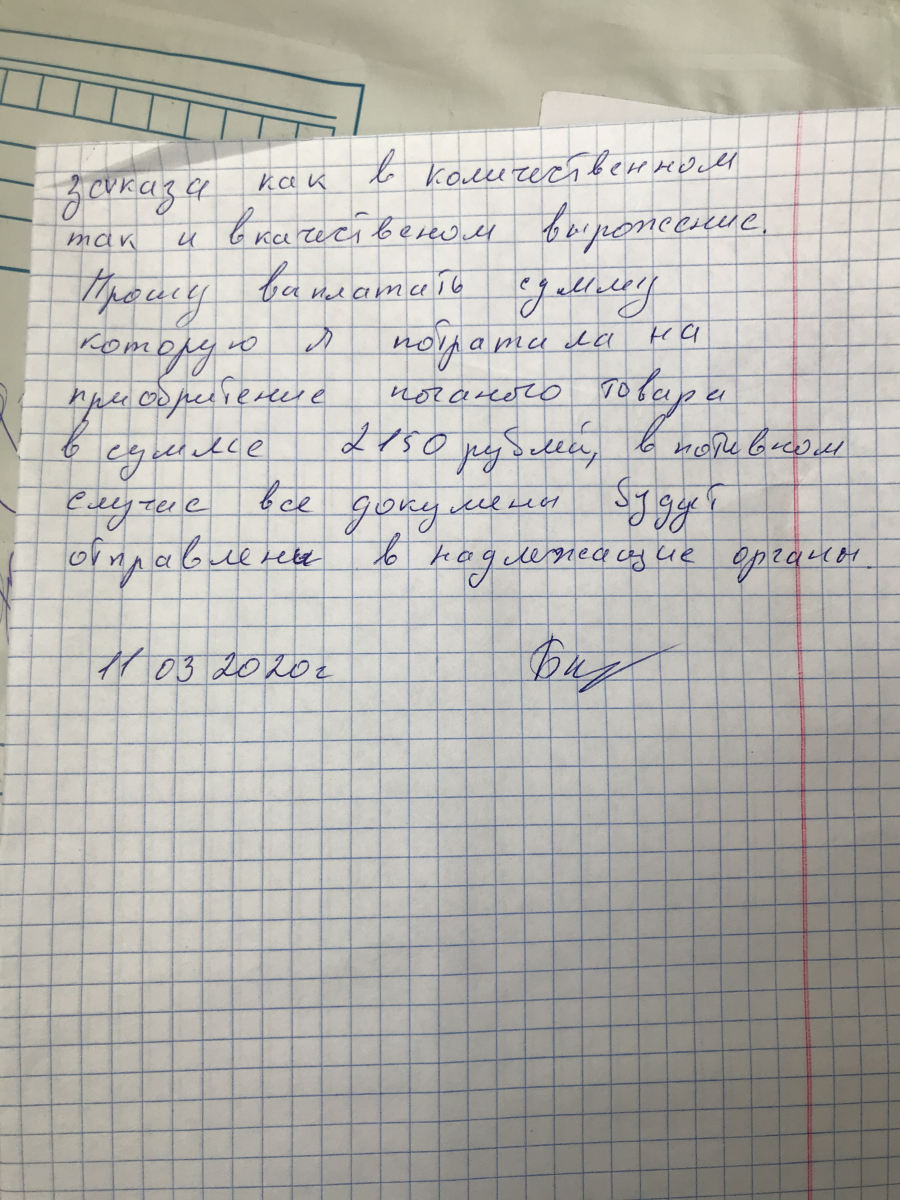 заказа как в количественном
так и вкачественом вырожение.
Прошу ваплатать сумму
которую я потратила на
приобритение поганого товара
в сумме 2150 рублей, в потивном
случие все докумены будут
отправлены в надлежащие органы.
11 03 2020г